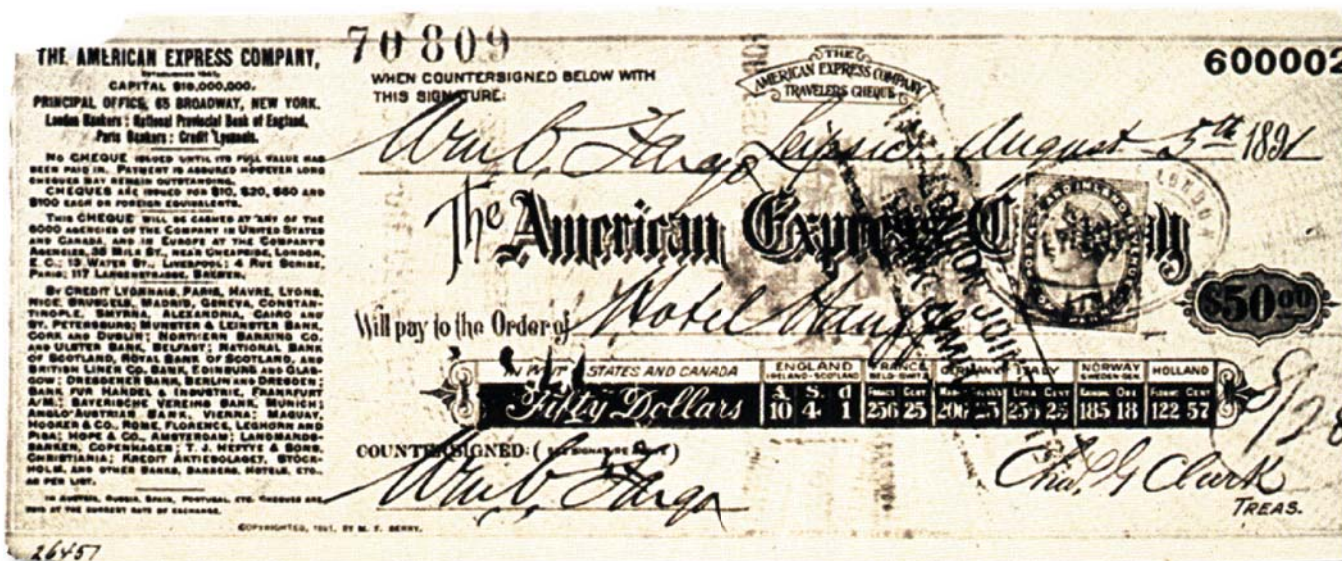 THE AMERICAN EXPRESS COMPANY,
ESTABLISHED 1841.
CAPITAL $18,000,000.
PRINCIPAL OFFICE, 65 BROADWAY, NEW YORK.
London Bankers: National Provincial Bank of England,
Paris Bankers: Credit Lyonnais.
NO CHEQUE ISSUED UNTIL ITS FULL VALUE HAS
BEEN PAID IN. PAYMENT IS ASSURED HOWEVER LONG
CHEQUES MAY REMAIN OUTSTANDING.
CHEQUES ARE ISSUED FOR $10, $20, $50 AND
$100 EACH OR FOREIGN EQUIVALENTS.
THIS CHEQUE WILL BE CASHED AT ANY OF THE
6000 AGENCIES OF THE COMPANY IN UNITED STATES
AND CANADA, AND IN EUROPE AT THE COMPANY'S
AGENCIES, MILK ST., NEAR CHEAPSIDE, LONDON,
E. C.; WATER ST., LIVERPOOL; 4 RUE SCRIBE,
PARIS; 117 LANGENSTRASSE, BREMEN.
BY CREDIT LYONNAIS, PARIS, HAVRE, LYONS,
NICE, BRUSSELS, MADRID, GENEVA, CONSTAN-
TINOPLE, SMYRNA, ALEXANDRIA, CAIRO AND
ST. PETERSBURG; MUNSTER & LEINSTER BANK,
CORK AND DUBLIN; NORTHERN BANKING CO.
AND ULSTER BANK, BELFAST; NATIONAL BANK
OF SCOTLAND, ROYAL BANK OF SCOTLAND, AND
BRITISH LINEN CO. BANK, EDINBURG AND GLAS-
GOW; DRESDENER BANK, BERLIN AND DRESDEN;
BANK FUR HANDEL & INDUSTRIE, FRANKFURT
A/M; BAYERISCHE VEREINS BANK, MUNICH;
ANGLO-AUSTRIAN BANK, VIENNA; MAQUAY,
HOOKER & CO., ROME, FLORENCE, LEGHORN AND
PISA; HOPE & CO., AMSTERDAM; LANDMANDS-
BANKEN, COPENHAGEN; T. J. HEFTYE & SONS,
CHRISTIANIA; KREDIT AKTIEBOLAGET, STOCK-
HOLM, AND OTHER BANKS, BANKERS, HOTELS, ETC.,
AS PER LIST.
IN AUSTRIA, RUSSIA, SPAIN, PORTUGAL, ETC. CHEQUES ARE
PAID AT THE CURRENT RATE OF EXCHANGE.
COPYRIGHTED, 1891, BY M. F. BERRY.
26457
70809
600002
WHEN COUNTERSIGNED BELOW WITH
THIS SIGNATURE:
THE
AMERICAN EXPRESS COMPANY
TRAVELERS CHEQUE
Wm C. Fargo Leipsic August 5th 1891
The American Express Company
$50.00
Will pay to the Order of Hotel Hauffe
IN UNITED STATES AND CANADA ENGLAND FRANCE GERMANY ITALY NORWAY HOLLAND
IRELAND-SCOTLAND
£ S. d
Fifty Dollars 10 4 1 256 25 206 25 185 18 122 57
COUNTERSIGNED:
Wm C. Fargo
Chas. G Clark
TREAS.
LONDON JOINT
LONDON